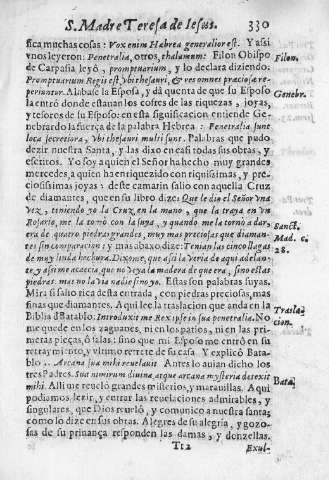 S. Madre Teresa de Iesus. 330
fica muchas cosas: Vox enim Hebrea generalior est. Y assi
vnos leyeron: Penetralia, otros, thalamum: Filon Obispo
de Carpasia leyò, promptuarium, y lo declara diziendo:
Promptuarium Regis est, vbi thesauri, & res omnes preciosa re-
periuntur. Alabase la Esposa, y dà quenta de que su Esposo
la entrò donde estauan los cofres de las riquezas, joyas,
y tesoros de su Esposo: en esta significacion entiende Ge-
nebrardo la fuerça de la palabra Hebrea: Penetralia sunt
loca secretiora, vbi thesauri multi sunt. Palabras que pudo
dezir nuestra Santa, y las dixo en casi todas sus obras, y
escritos. Yo soy a quien el Señor ha hecho muy grandes
mercedes, a quien ha enriquezido con riquissimas, y pre-
ciosissimas joyas: deste camarin salio con aquella Cruz
de diamantes, que en su libro dize: Que le dio el Señor vna
vez, teniendo yo la Cruz en la mano, que la traya en vn
Rosario, me la tomò con la suya, y quando me la tornò a dar,
era de quatro piedras grandes, muy mas preciosas que diaman-
tes sin comparacion: y mas abaxo dize: Tenian las cinco llagas
de muy linda hechura. Dixome, que assi la veria de aqui adelan-
te, y assi me acaecia, que no veya la madera de que era, sino estas
piedras: mas no la via nadie sino yo. Estas son palabras suyas.
Mira si salio rica desta entrada, con piedras preciosas, mas
finas que diamantes. Aqui lee la traslacion que anda en la
Biblia d Batablo. Introduxit me Rex ipse in sua penetralia. No
me quedè en los zaguanes, ni en los patios, ni en las pri-
meras pieças, ò salas: sino que mi Esposo me entrò en su
retraymiento, y vltimo retrete de su casa. Y explicò Bata-
blo .. Arcana sua mihi reuelauit Antes lo auian dicho los
tres Padres. Sua numirum diuina, atque arcana mysteria detexit
mihi. Alli me reuelò grandes misterios, y marauillas. Aqui
podiamos lerir, y entrar las reuelaciones admirables, y
singulares, que Dios reuelò, y comunicò a nuestra santa;
como lo dize en sus obras. Alegres de su alegria, y gozo-
sas de su priuança responden las damas, y donzellas.
Tt2 Exul-
Filon.
Genebr.
Sanct.
Mad. c.
28.
Traslacion.
Batab.